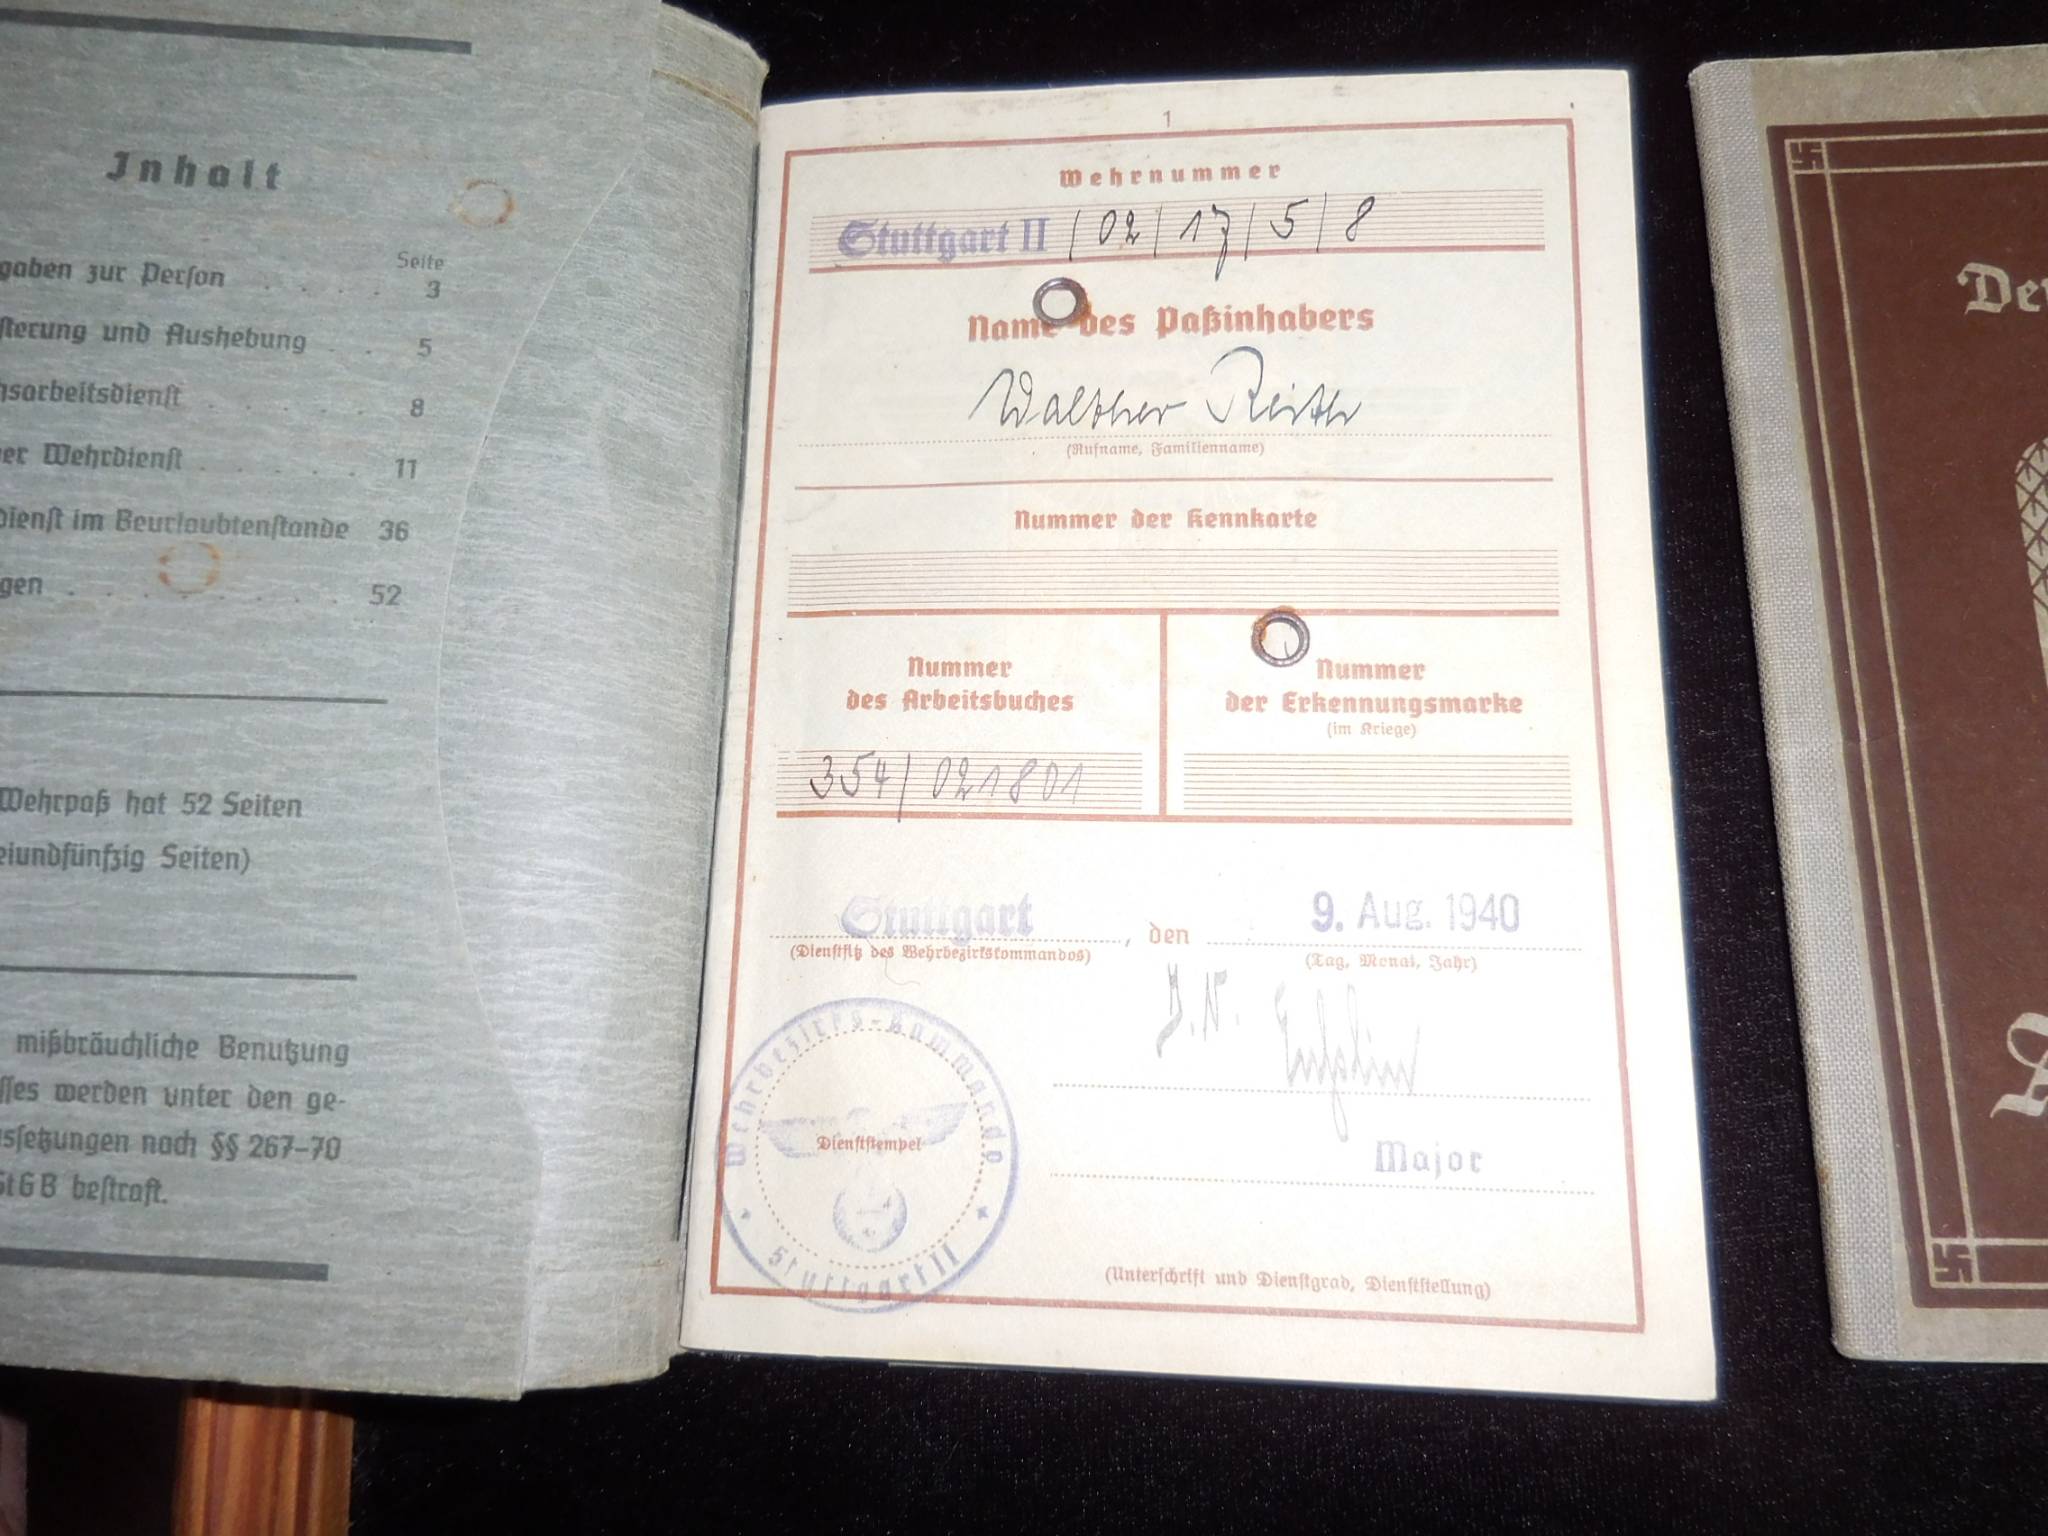 Inhalt
Seite
gaben zur Person . . . . 3
sterung und Aushebung . . 5
hsarbeitsdienst . . . . . . 8
er Wehrdienst . . . . . . 11
dienst im Beurlaubtenstande 36
gen . . . . . . . . . 52
Wehrpaß hat 52 Seiten
eiundfünfzig Seiten)
mißbräuchliche Benutzung
sses werden unter den ge-
ssetzungen nach §§ 267–70
StGB bestraft.
1
Wehrnummer
Stuttgart II / 02 / 17 / 5 / 8
Name des Paßinhabers
Walther Reith
(Rufname, Familienname)
Nummer der Kennkarte
Nummer
des Arbeitsbuches
354/021801
Nummer
der Erkennungsmarke
(im Kriege)
Stuttgart, den 9. Aug. 1940
(Dienstsitz des Wehrbezirkskommandos) (Tag, Monat, Jahr)
Major
Wehrbezirks-Kommando
Dienststempel
Stuttgart II
(Unterschrift und Dienstgrad, Dienststellung)